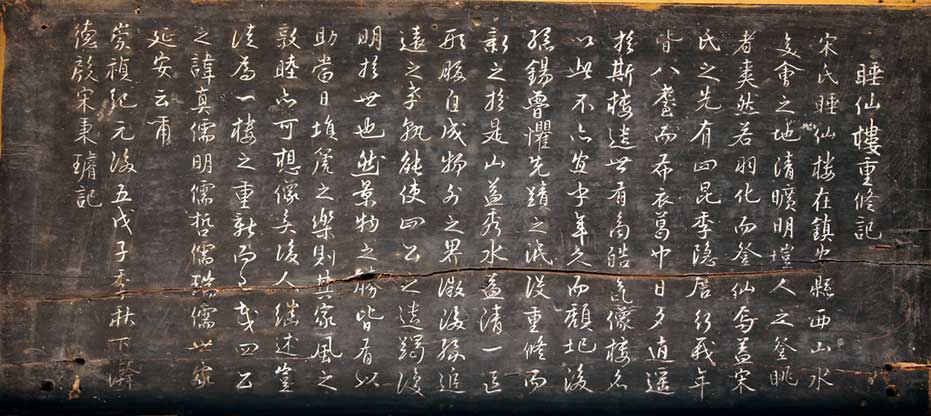 睡仙樓重修記
宋氏睡仙樓在鎮安縣西山水
交會之地清曠明塏人之登眺
者爽然若羽化而登仙焉蓋宋
氏之先有四昆季隱居行義年
皆八耋而布衣葛巾日夕逍遙
於斯樓世有商皓像樓名
以此不亦宜乎年久而頹圮後
孫錫曾懼先蹟之泯沒重修而
新之於是山益秀水益清一區
形勝自成物外之界微後孫追
遠之孝孰能使四公之遺躅復
明於世也然景物之勝皆有以
助當日塤篪之樂則其家風之
敦睦亦可想像矣後人繼述豈
徒爲一樓之重新而已哉四公
之諱眞儒明儒哲儒瑞儒世家
延安云爾
崇禎紀元後五戊子季秋下澣
德殷宋秉璿記